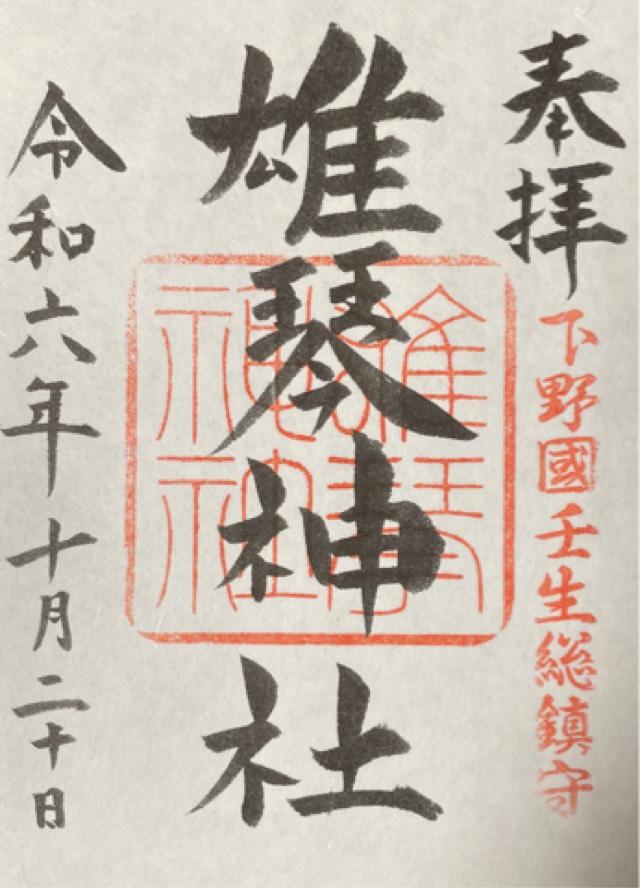 奉拝
下野國壬生総鎮守
雄琴神社
雄琴神社
令和六年十月二十日